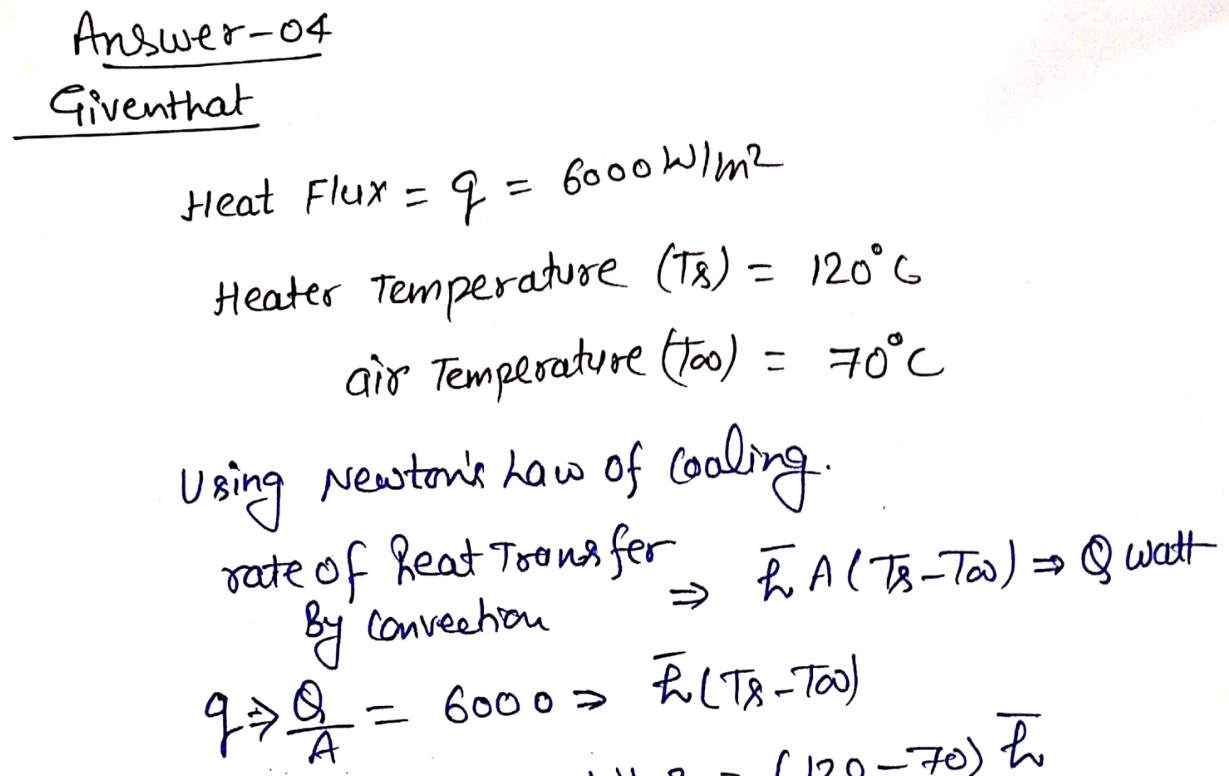 Answer-04
Giventhat
Heat Flux = q = 6000 W/m²
Heater Temperature (Ts) = 120°C
air Temperature (T∞) = 70°C
Using Newton's Law of Cooling.
rate of heat Transfer ⇒ h̄ A (Ts-T∞) ⇒ Q watt
By convection
q ⇒ Q/A = 6000 ⇒ h̄ (Ts-T∞)
= (120-70) h̄